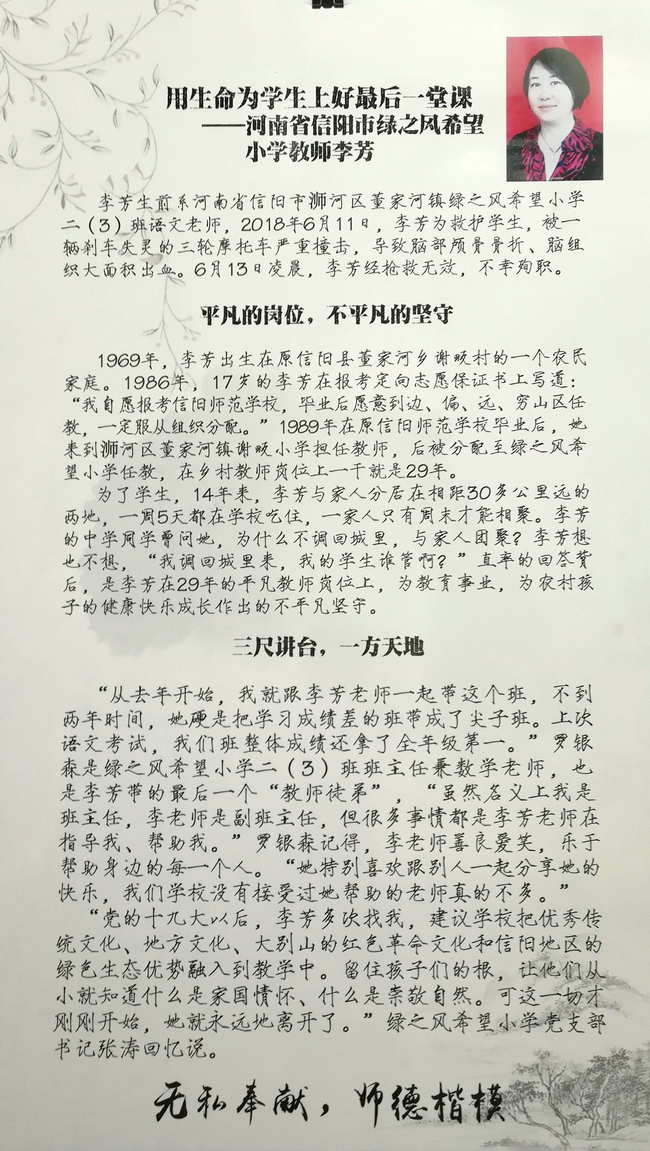 用生命为学生上好最后一堂课
——河南省信阳市绿之风希望
小学教师李芳
李芳生前系河南省信阳市浉河区董家河镇绿之风希望小学
二（3）班语文老师，2018年6月11日，李芳为救护学生，被一
辆刹车失灵的三轮摩托车严重撞击，导致脑部颅骨骨折、脑组
织大面积出血。6月13日凌晨，李芳经抢救无效，不幸殉职。
平凡的岗位，不平凡的坚守
1969年，李芳出生在原信阳县董家河乡谢畈村的一个农民
家庭。1986年，17岁的李芳在报考定向志愿保证书上写道：
“我自愿报考信阳师范学校，毕业后愿意到边、偏、远、穷山区任
教，一定服从组织分配。”1989年在原信阳师范学校毕业后，她
来到浉河区董家河镇谢畈小学担任教师，后被分配至绿之风希
望小学任教，在乡村教师岗位上一干就是29年。
为了学生，14年来，李芳与家人分居在相距30多公里远的
两地，一周5天都在学校吃住，一家人只有周末才能相聚。李芳
的中学同学曾问她，为什么不调回城里，与家人团聚？李芳想
也不想，“我调回城里来，我的学生谁管啊？”直率的回答背
后，是李芳在29年的平凡教师岗位上，为教育事业，为农村孩
子的健康快乐成长作出的不平凡坚守。
三尺讲台，一方天地
“从去年开始，我就跟李芳老师一起带这个班，不到
两年时间，她硬是把学习成绩差的班带成了尖子班。上次
语文考试，我们班整体成绩还拿了全年级第一。”罗银
森是绿之风希望小学二（3）班班主任兼数学老师，也
是李芳带的最后一个“教师徒弟”，“虽然名义上我是
班主任，李老师是副班主任，但很多事情都是李芳老师在
指导我、帮助我。”罗银森记得，李老师善良爱笑，乐于
帮助身边的每一个人。“她特别喜欢跟别人一起分享她的
快乐，我们学校没有接受过她帮助的老师真的不多。”
“党的十九大以后，李芳多次找我，建议学校把优秀传
统文化、地方文化、大别山的红色革命文化和信阳地区的
绿色生态优势融入到教学中。留住孩子们的根，让他们从
小就知道什么是家国情怀、什么是崇敬自然。可这一切才
刚刚开始，她就永远地离开了。”绿之风希望小学党支部
书记张涛回忆说。
无私奉献，师德楷模